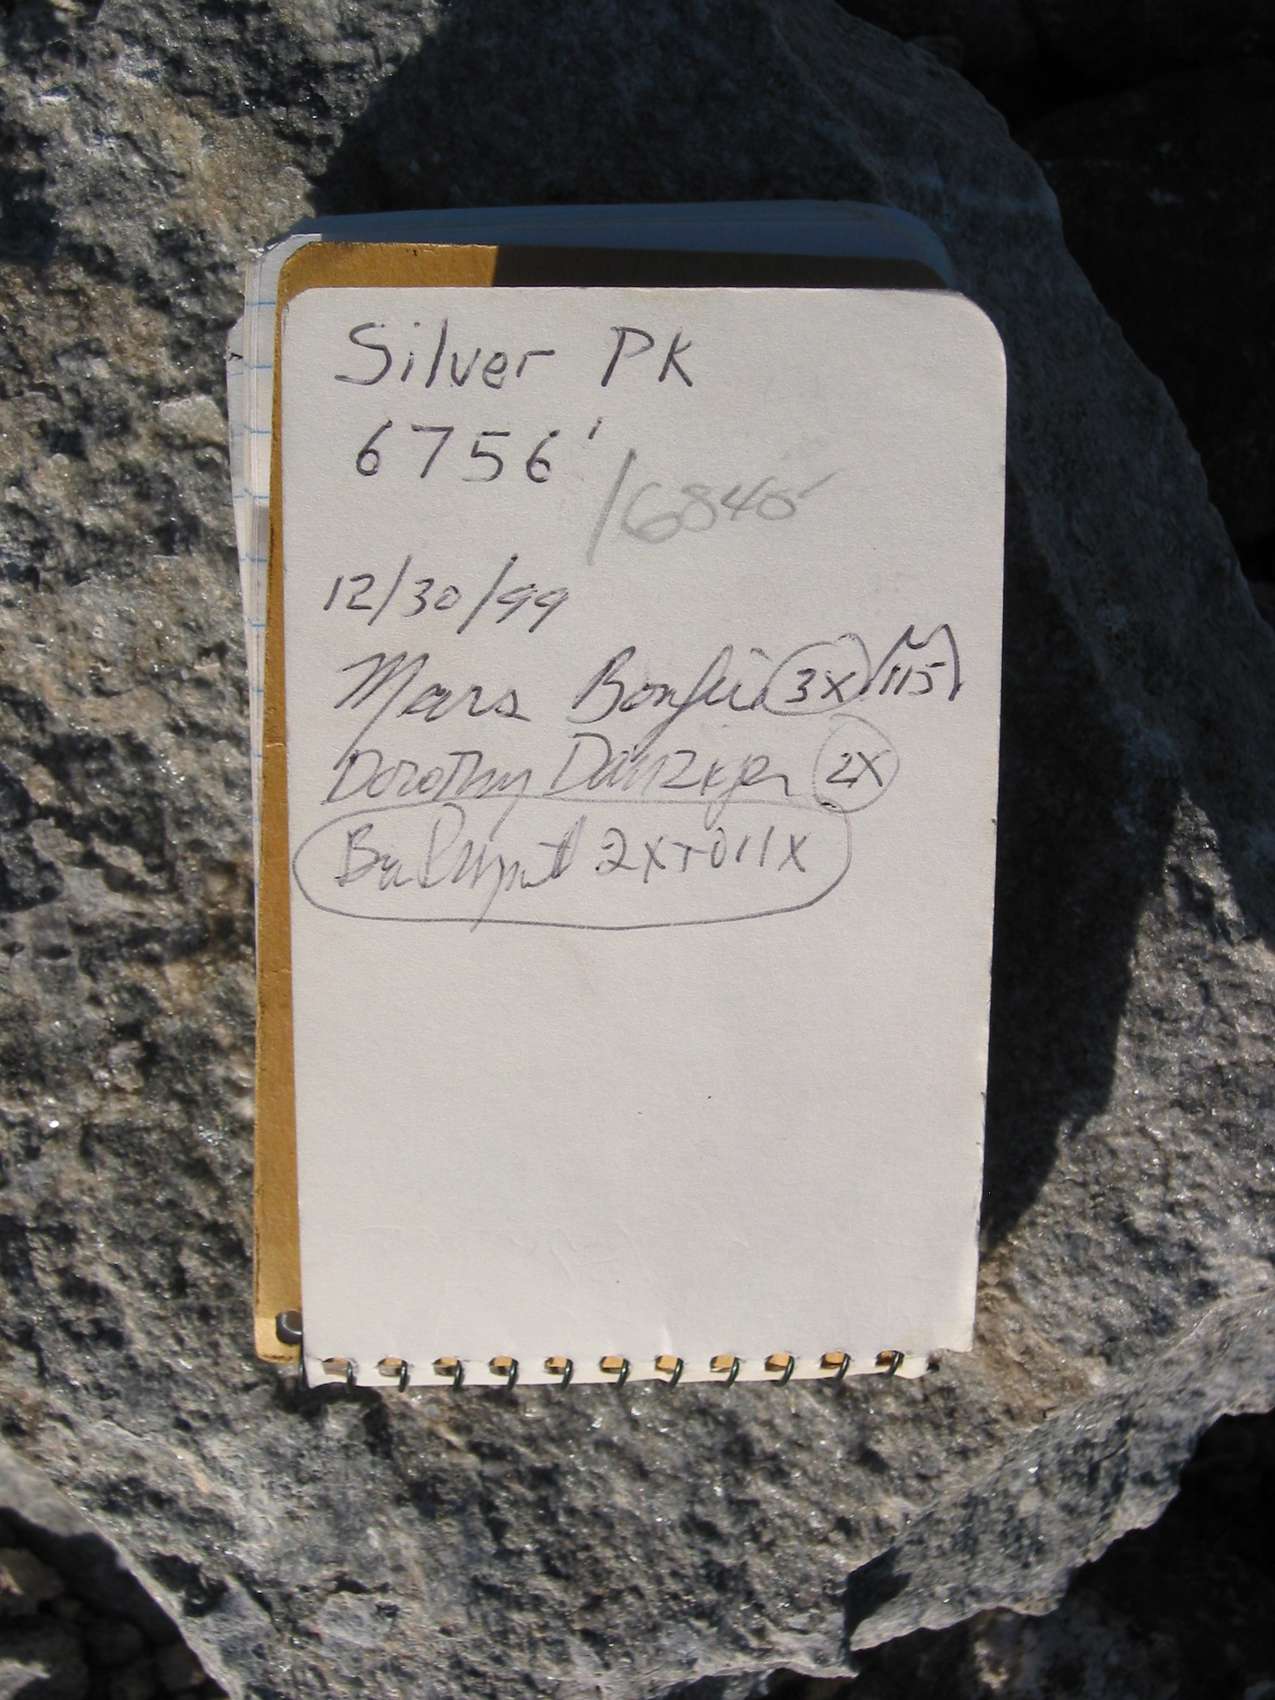 Silver PK
6756'
/6840
12/30/99
Mars Bonfire 3X 115
Dorothy Danziger 2X
2X